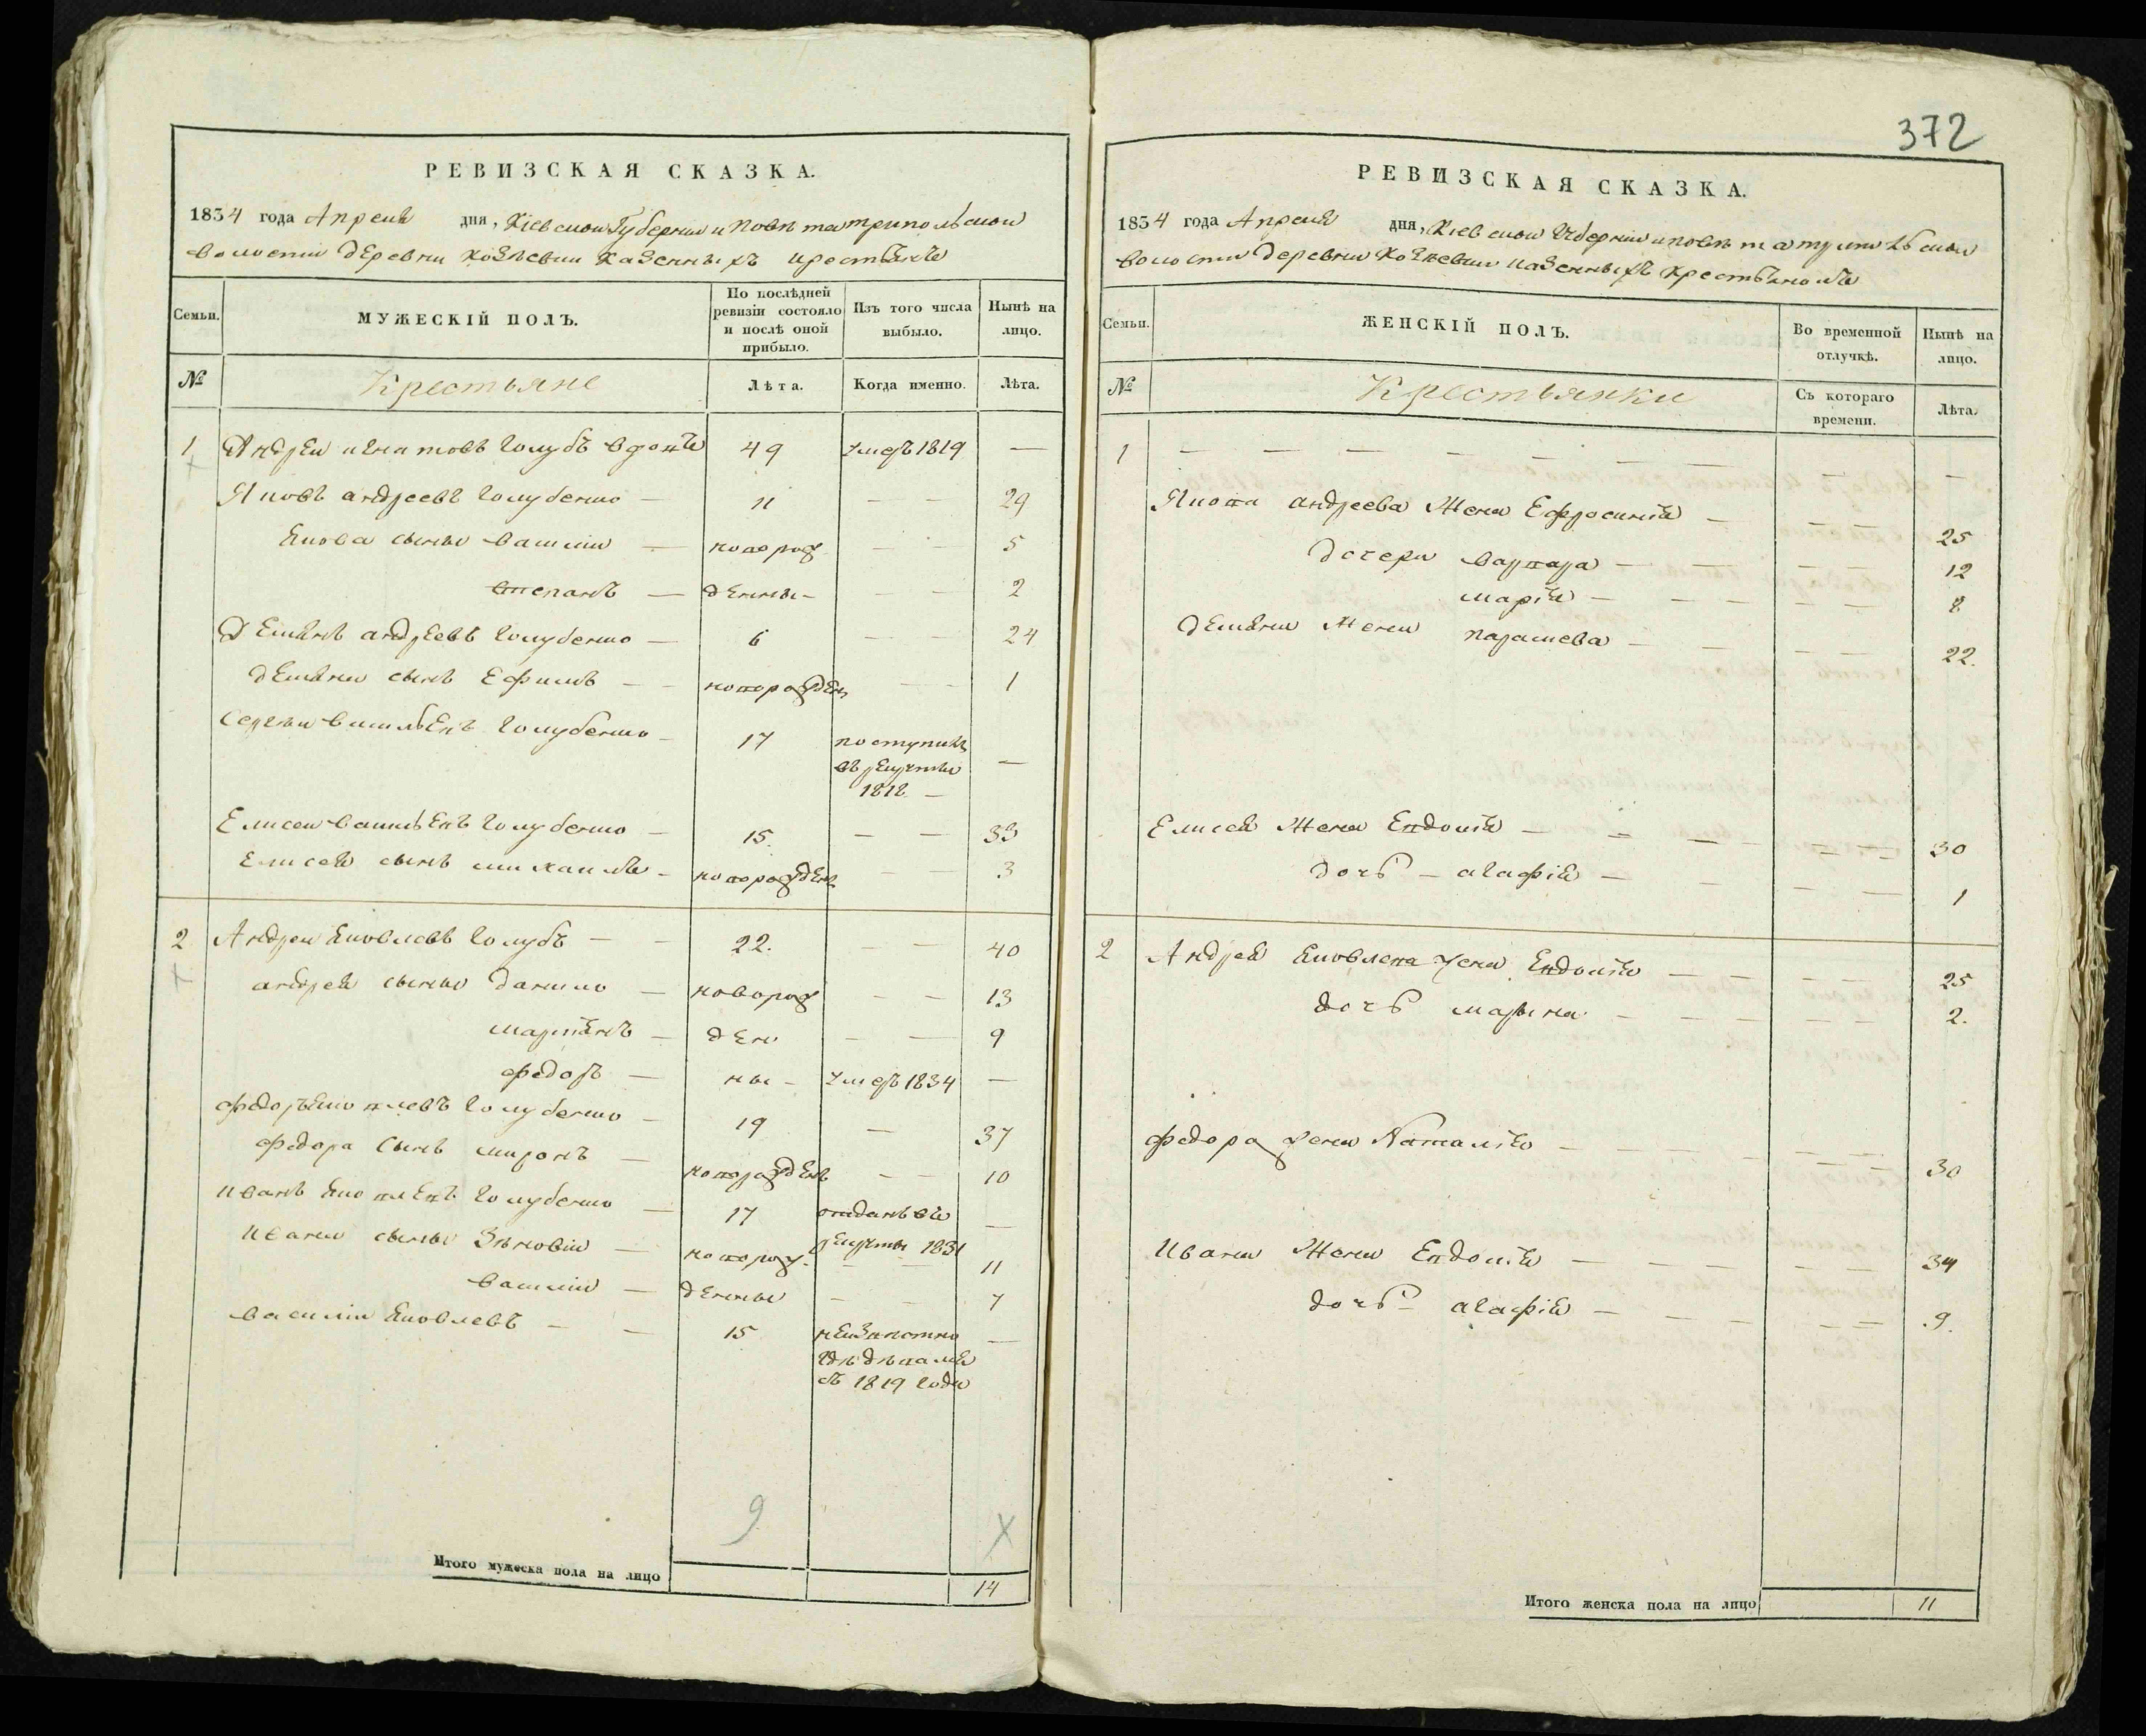 372
РЕВИЗСКАЯ СКАЗКА.
1834 года Апреля дня, Кіевской Губерніи и повѣта трипольской
волости деревни козѣевки казенныхъ крестьянъ
Семьи.
МУЖЕСКІЙ ПОЛЪ.
По послѣдней ревизіи состояло и послѣ оной прибыло.
Изъ того числа выбыло.
Нынѣ на лицо.
№ Крестьяне Лѣта. Когда именно. Лѣта.
1 Андрей игнатовъ голубъ 49 умеръ 1819 —
Яковъ андреевъ голубенко — 11 — — 29
Якова сыны василій — новорож — — 5
степанъ — денны — — — 2
Демянъ андреевъ голубенко — 6 — — 24
демяна сынъ Ефимъ — — новорожденъ — — 1
Сергѣй васильевъ голубенко — 17 поступилъ —
въ рекруты
1818 —
Елисей васильевъ голубенко — 15. — — 33
Елисея сынъ михаилъ — новорожденъ — — 3
2 Андрей Яковлевъ голубъ — — 22. — — 40
андрея сыны данило — новорож — — 13
мартынъ — ден — — 9
федоръ — ны — умеръ 1834 —
федоръ Яковлевъ голубенко — 19 — 37
федора сынъ миронъ — новорожденъ — — 10
иванъ Яковлевъ голубенко — 17 отданъ въ —
рекруты 1831
ивана сыны Зѣновій — новорож. — — 11
василій — денны — — 7
василій Яковлевъ — — 15 неизвѣстно —
гдѣ дѣвался
съ 1819 года
9 X
Итого мужеска пола на лицо 14
РЕВИЗСКАЯ СКАЗКА.
1834 года Апреля дня, Кіевской Губерніи и повѣта
волости деревни Козѣевки казенныхъ крестьяномъ
Семьи.
ЖЕНСКІЙ ПОЛЪ.
Во временной отлучкѣ.
Нынѣ на лицо.
№ Крестьянки Съ котораго времени. Лѣта.
1 — — — — — — — — —
Якова андреева Жена Ефросинія — — — 25
дочери варвара — — — — 12
марія — — — — — 8
Демяна Жена параскева — — — — 22.
Елисея Жена Евдокія — — — — — 30
дочь — агафія — — — — 1
2 Андрея Яковлева жена Евдокія — — — — 25
дочь марина — — — — — 2.
федора жена Наталія — — — — — — 30
Ивана Жена Евдокія — — — — — — 34
дочь — агафія — — — — — 9.
Итого женска пола на лицо 11